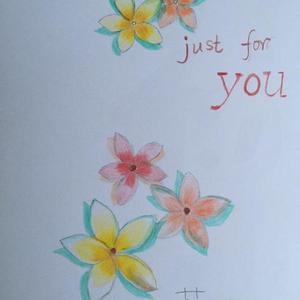 just for
you